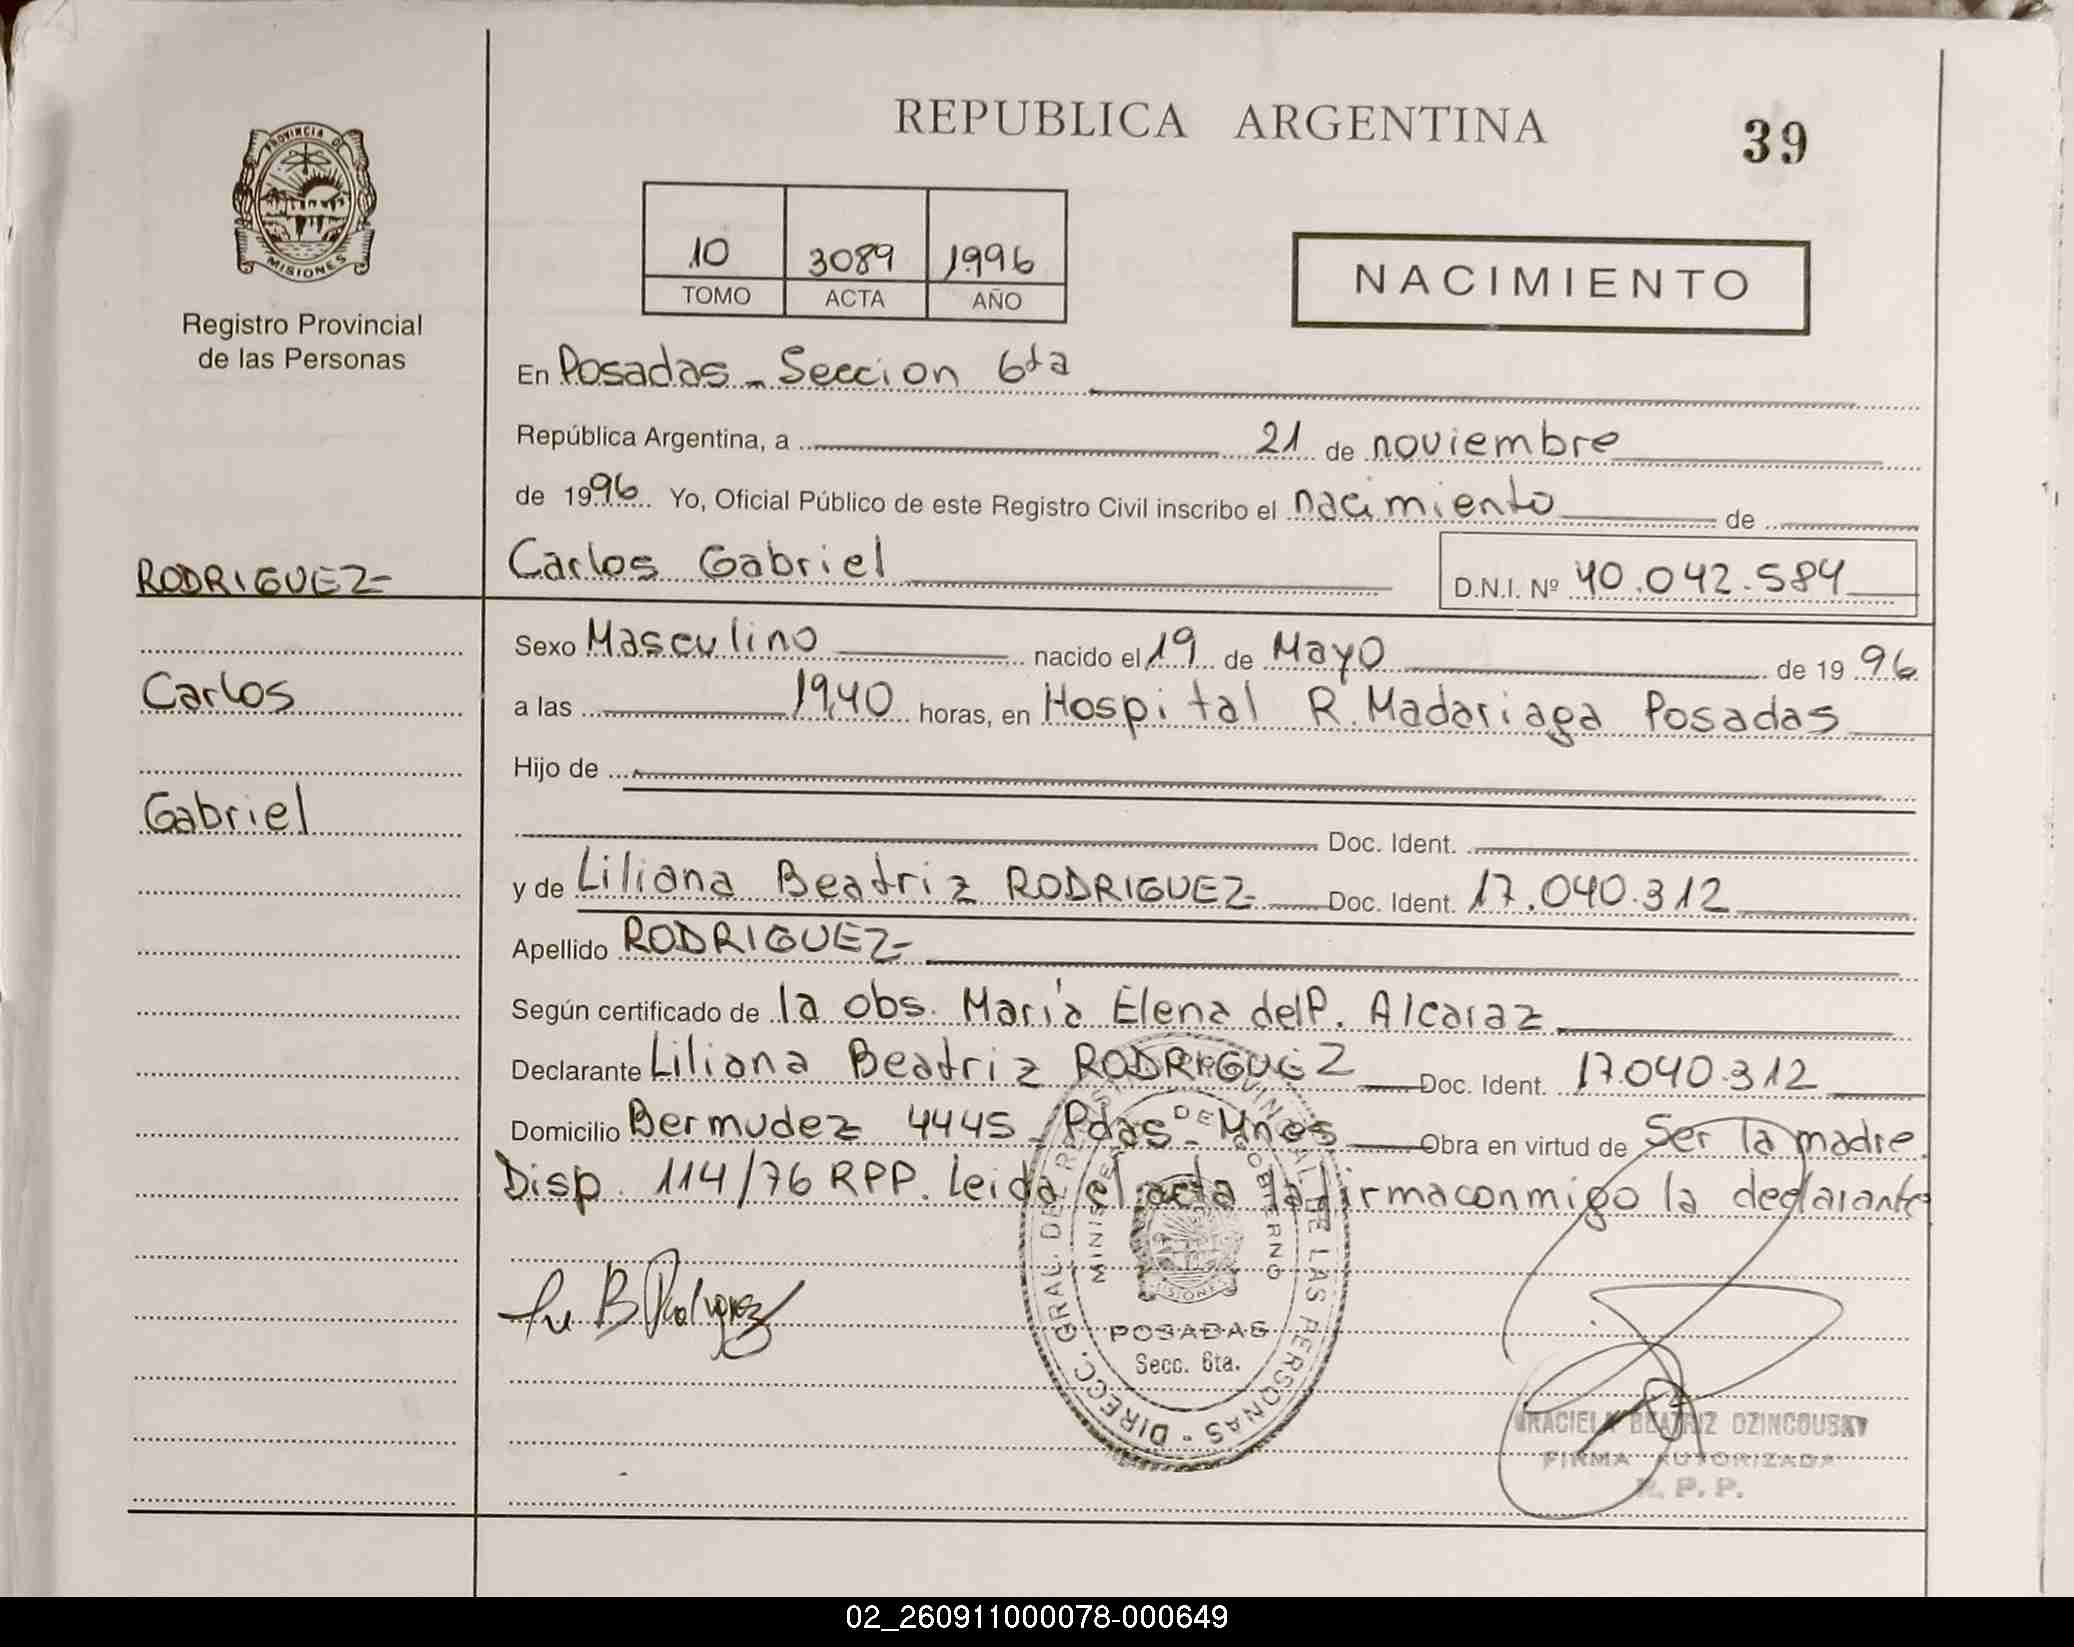 REPUBLICA ARGENTINA
39
PROVINCIA DE
MISIONES
Registro Provincial
de las Personas
10 3089 1996
TOMO ACTA AÑO
NACIMIENTO
En Posadas - Seccion 6ta
República Argentina, a 21 de noviembre
de 1996 Yo, Oficial Público de este Registro Civil inscribo el nacimiento de
Carlos Gabriel D.N.I. Nº 40.042.584
RODRIGUEZ-
Carlos
Gabriel
Sexo Masculino nacido el 19 de Mayo de 1996
a las 19,40 horas, en Hospital R. Madariaga Posadas
Hijo de
Doc. Ident.
y de Liliana Beatriz RODRIGUEZ Doc. Ident. 17.040.312
Apellido RODRIGUEZ-
Según certificado de la obs. María Elena del P. Alcaraz
Declarante Liliana Beatriz RODRIGUEZ Doc. Ident. 17.040.312
Domicilio Bermudez 4445 Pdas - Mnes Obra en virtud de Ser la madre
Disp. 114/76 RPP. Leida el acta la firma conmigo la declarante
B Rodriguez
DIRECC. GRAL. DEL REGISTRO PROVINCIAL DE LAS PERSONAS
MINISTERIO DE GOBIERNO
MISIONES
POSADAS
Secc. 6ta.
GRACIELA BEATRIZ OZINCOUSKY
FIRMA AUTORIZADA
R. P. P.
02_260911000078-000649